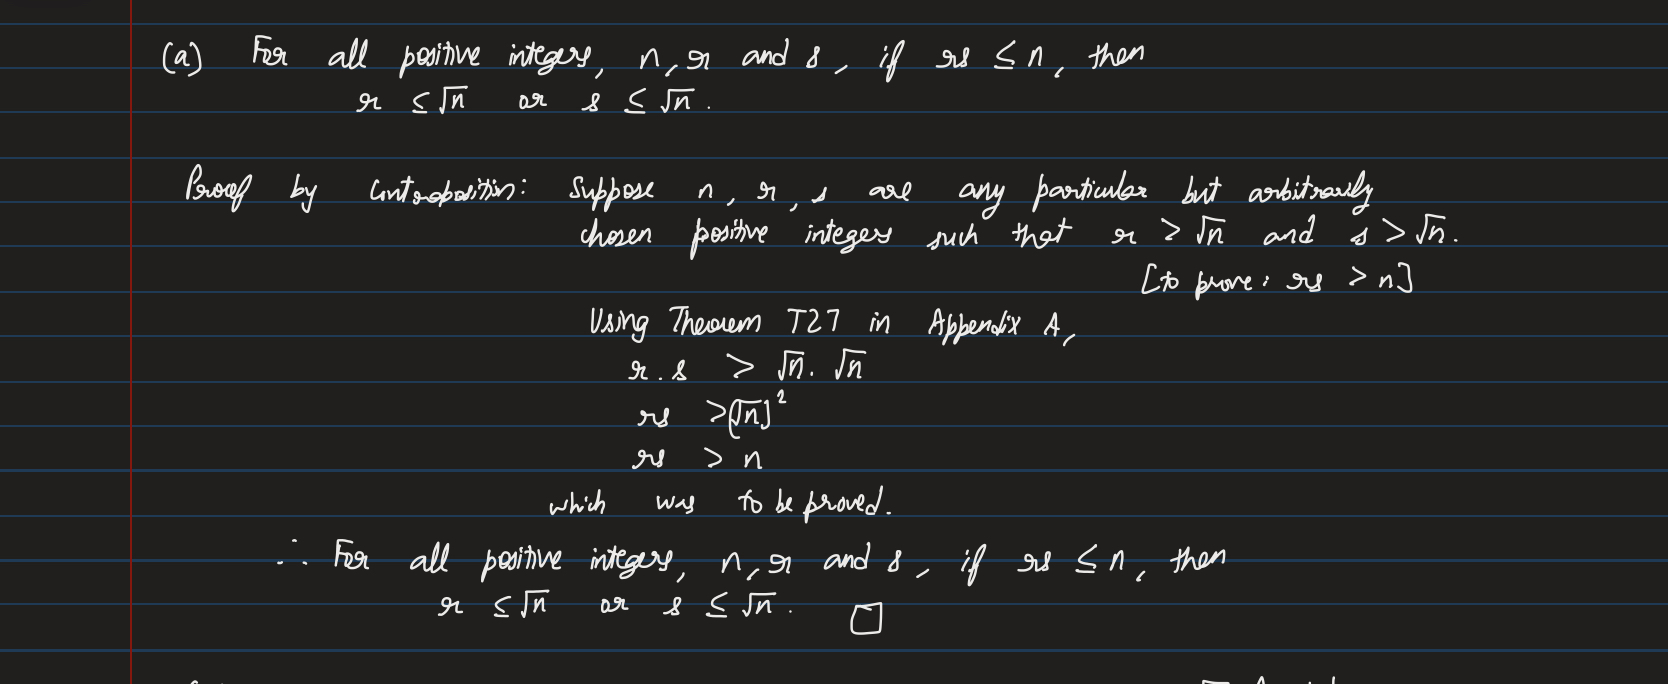 (a) For all positive integers, n, r and s, if rs ≤ n, then
r ≤ √n or s ≤ √n.
Proof by Contraposition: Suppose n, r, s are any particular but arbitrarily
chosen positive integers such that r > √n and s > √n.
[to prove: rs > n]
Using Theorem T27 in Appendix A,
r.s > √n. √n
rs > (√n)²
rs > n
which was to be proved.
∴ For all positive integers, n, r and s, if rs ≤ n, then
r ≤ √n or s ≤ √n. □